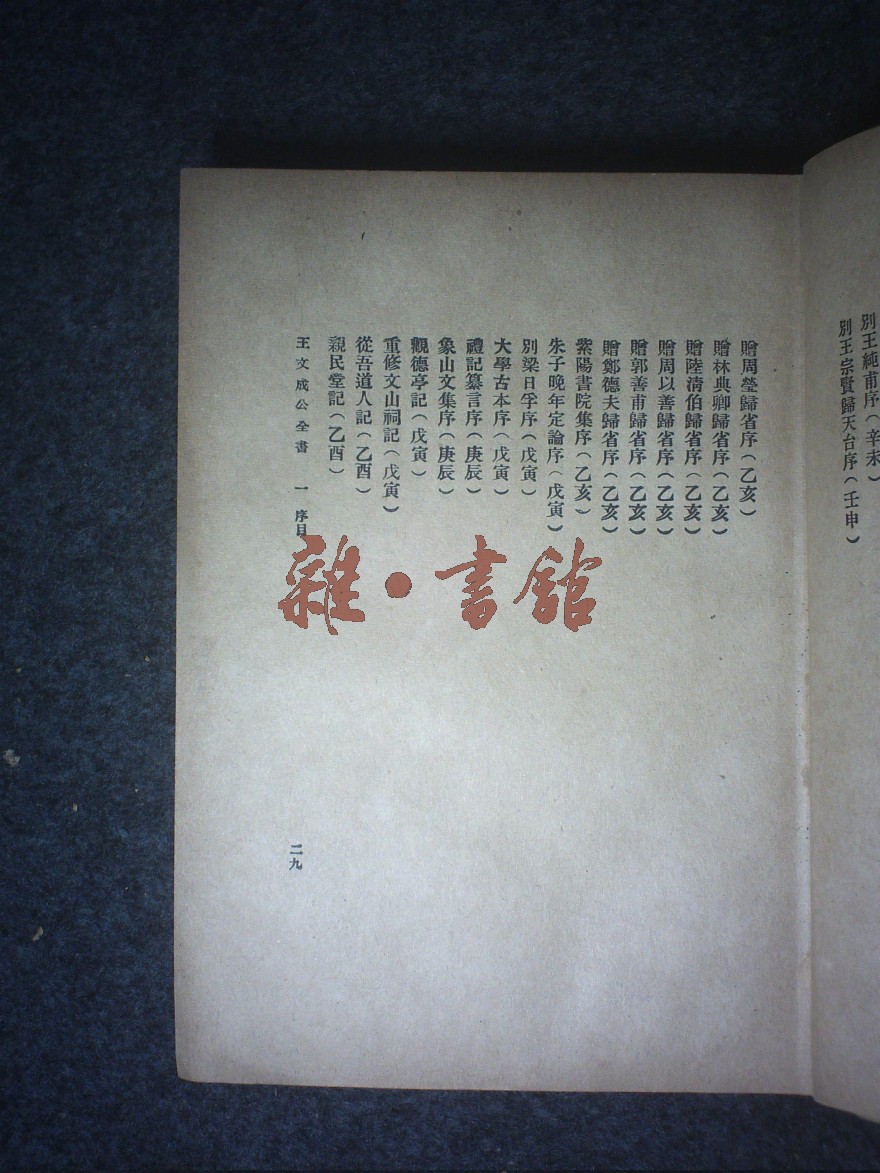 別王純甫序（辛未）
別王宗賢歸天台序（壬申）
贈周瑩歸省序（乙亥）
贈林典卿歸省序（乙亥）
贈陸清伯歸省序（乙亥）
贈周以善歸省序（乙亥）
贈郭善甫歸省序（乙亥）
贈鄭德夫歸省序（乙亥）
紫陽書院集序（乙亥）
朱子晚年定論序（戊寅）
別梁日孚序（戊寅）
大學古本序（戊寅）
禮記纂言序（庚辰）
象山文集序（庚辰）
觀德亭記（戊寅）
重修文山祠記（戊寅）
從吾道人記（乙酉）
親民堂記（乙酉）
王文成公全書 一 序目
二九
雜•書館